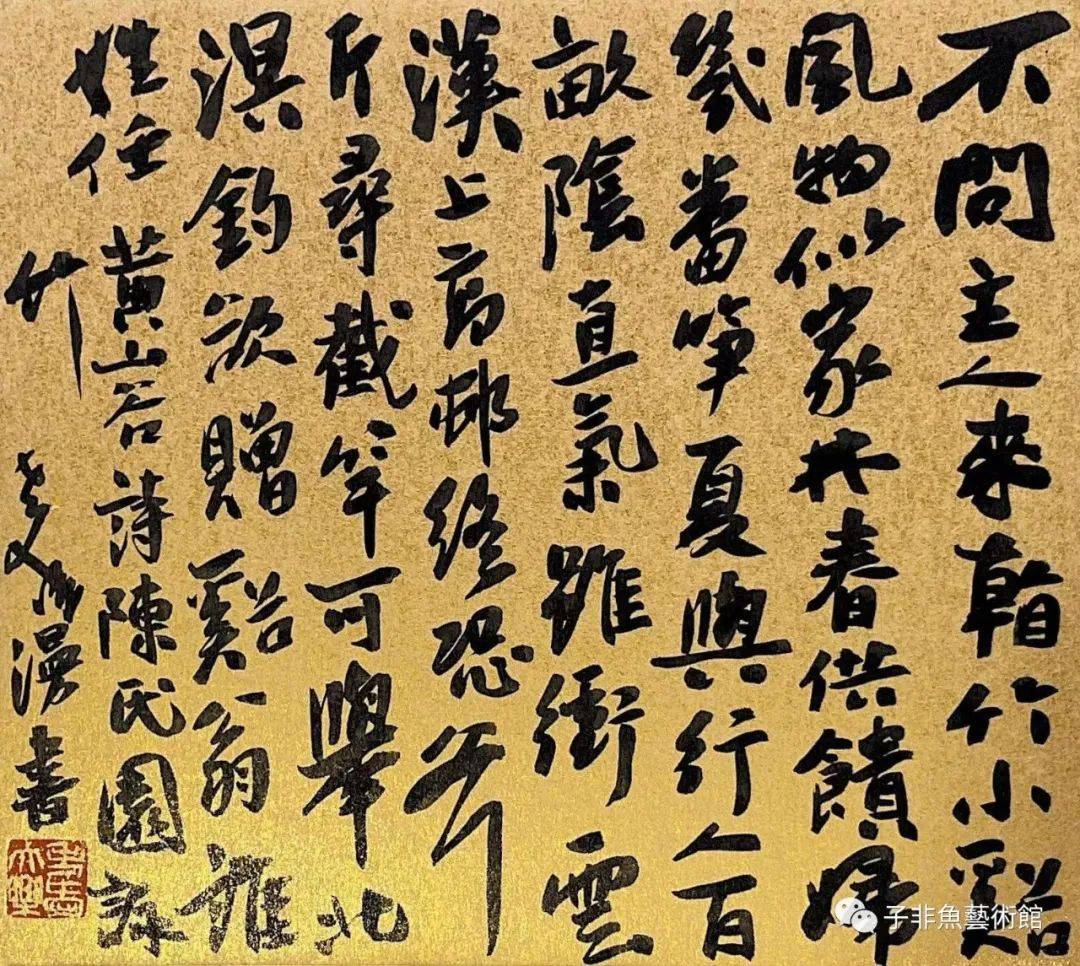 不問主人來看竹小谿
風物似家林春供饋婦
幾番筍夏與行人百
畝陰直氣雖衝雲
漢上高邨終恐斧
斤尋截竿可舉北
溟釣欲贈谿翁誰
姓任 黃山谷詩陳氏園詠
竹 漫書
子非魚藝術館